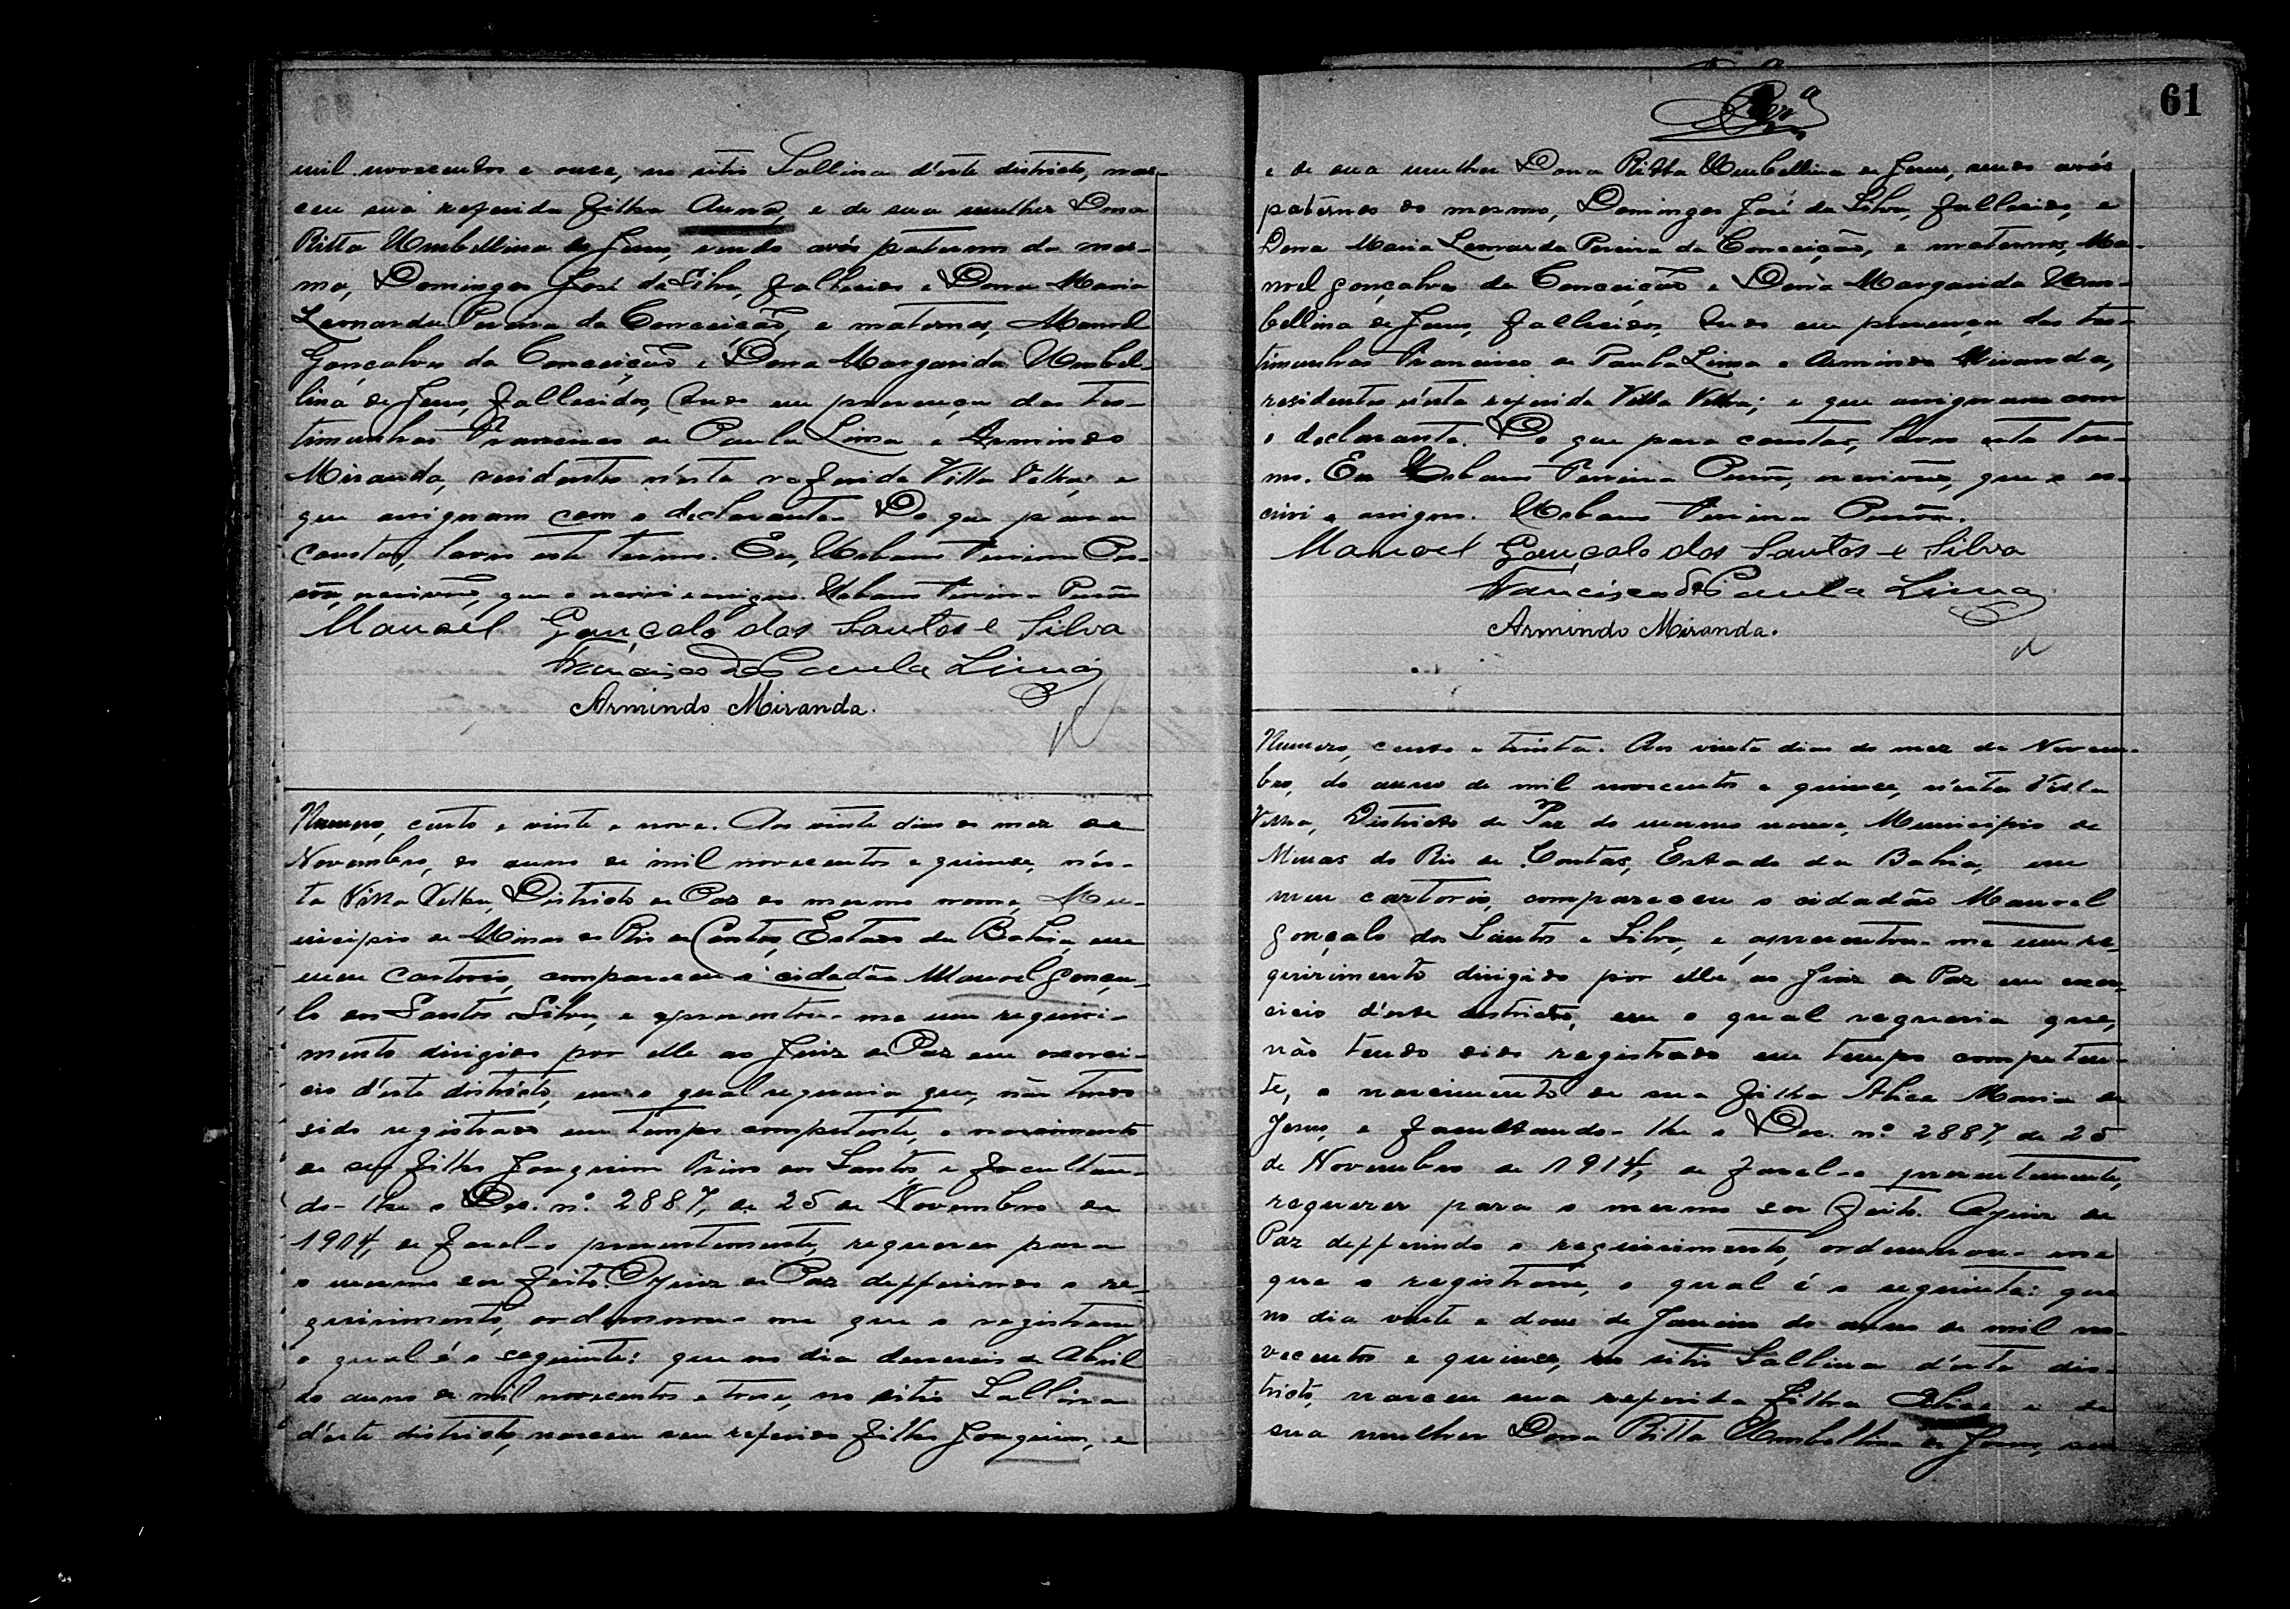 mil novecentos e onze, no sitio Sallina d'este districto, nas-
ceu sua referida filha Anna, e de sua mulher Dona
Ritta Umbellina de Jesus, sendo avós paternos da mes-
ma, Domingos José da Silva, fallecido e Dona Maria
Leonarda Pereira da Conceição, e maternos, Manoel
Gonçalves da Conceição e Dona Margarida Umbel-
lina de Jesus, fallecidos, tudo em presença das tes-
timunhas Francisco de Paula Lima e Armindo
Miranda, residentes n'esta referida Villa Velha; e
que assignam com o declarante. Do que para
constar, lavro este termo. Eu, Urbano Pereira
escrivão, que o escrevi e assigno. Urbano Pereira
Manoel Gonçalo dos Santos e Silva
Francisco de Paula Lima
Armindo Miranda.
Numero, cento e vinte e nove. Aos vinte dias do mez de
Novembro, do anno de mil novecentos e quinze, n'es-
ta Villa Velha, Districto de Paz do mesmo nome, Mu-
nicipio de Minas do Rio de Contas, Estado da Bahia, em
meu cartorio, compareceu o cidadão Manoel Gonça-
lo dos Santos Silva, e apresentou-me um requiri-
mento dirigido por elle ao Juiz de Paz em exerci-
cio d'este districto, em o qual requeria que, não tendo
sido registrado em tempo competente, o nascimento
de seu filho Joaquim dos Santos, e facultan-
do-lhe o Dec. nº. 2887, de 25 de Novembro de
1914, de fazel-o presentemente, requerer para
o mesmo ser feito. O Juiz de Paz defferindo o re-
quirimento, ordennou-me que o registrasse
o qual é o seguinte: que no dia deseseis de Abril
do anno de mil novecentos e treze, no sitio Sallina
d'este districto, nasceu seu referido filho Joaquim, e
61
e de sua mulher Dona Ritta Umbellina de Jesus, sendo avós
paternos do mesmo, Domingos José da Silva, fallecido, e
Dona Maria Leonarda Pereira da Conceição, e maternos, Ma-
noel Gonçalves da Conceição e Dona Margarida Um-
bellina de Jesus, fallecidos, tudo em presença das tes-
timunhas Francisco de Paula Lima e Armindo Miranda,
residentes n'esta referida Villa Velha; e que assignam com
o declarante. Do que para constar, lavro este ter-
mo. Eu Urbano Pereira escrivão, que o es-
crivi e assigno. Urbano Pereira
Manoel Gonçalo dos Santos e Silva
Francisco de Paula Lima
Armindo Miranda.
Numero, cento e trinta. Aos vinte dias do mez de Novem-
bro, do anno de mil novecentos e quinze, n'esta Villa
Velha, Districto de Paz do mesmo nome, Municipio de
Minas do Rio de Contas, Estado da Bahia, em
meu cartorio, compareceu o cidadão Manoel
Gonçalo dos Santos e Silva, e apresentou-me um re-
quirimento dirigido por elle ao Juiz de Paz em exer-
cicio d'este districto, em o qual requeria que,
não tendo sido registrado em tempo competen-
te, o nascimento de sua filha Alice Maria de
Jesus, e facultando-lhe o Dec. nº 2887, de 25
de Novembro de 1914, de fazel-o presentemente,
requerer para o mesmo ser feito. O Juiz de
Paz defferindo o requirimento, ordennou-me
que o registrasse, o qual é o seguinte: que
no dia vinte e dous de Janeiro do anno de mil no-
vecentos e quinze, no sitio Sallina d'este dis-
tricto, nasceu sua referida filha Alice e de
sua mulher Dona Ritta Umbellina de Jesus, sen